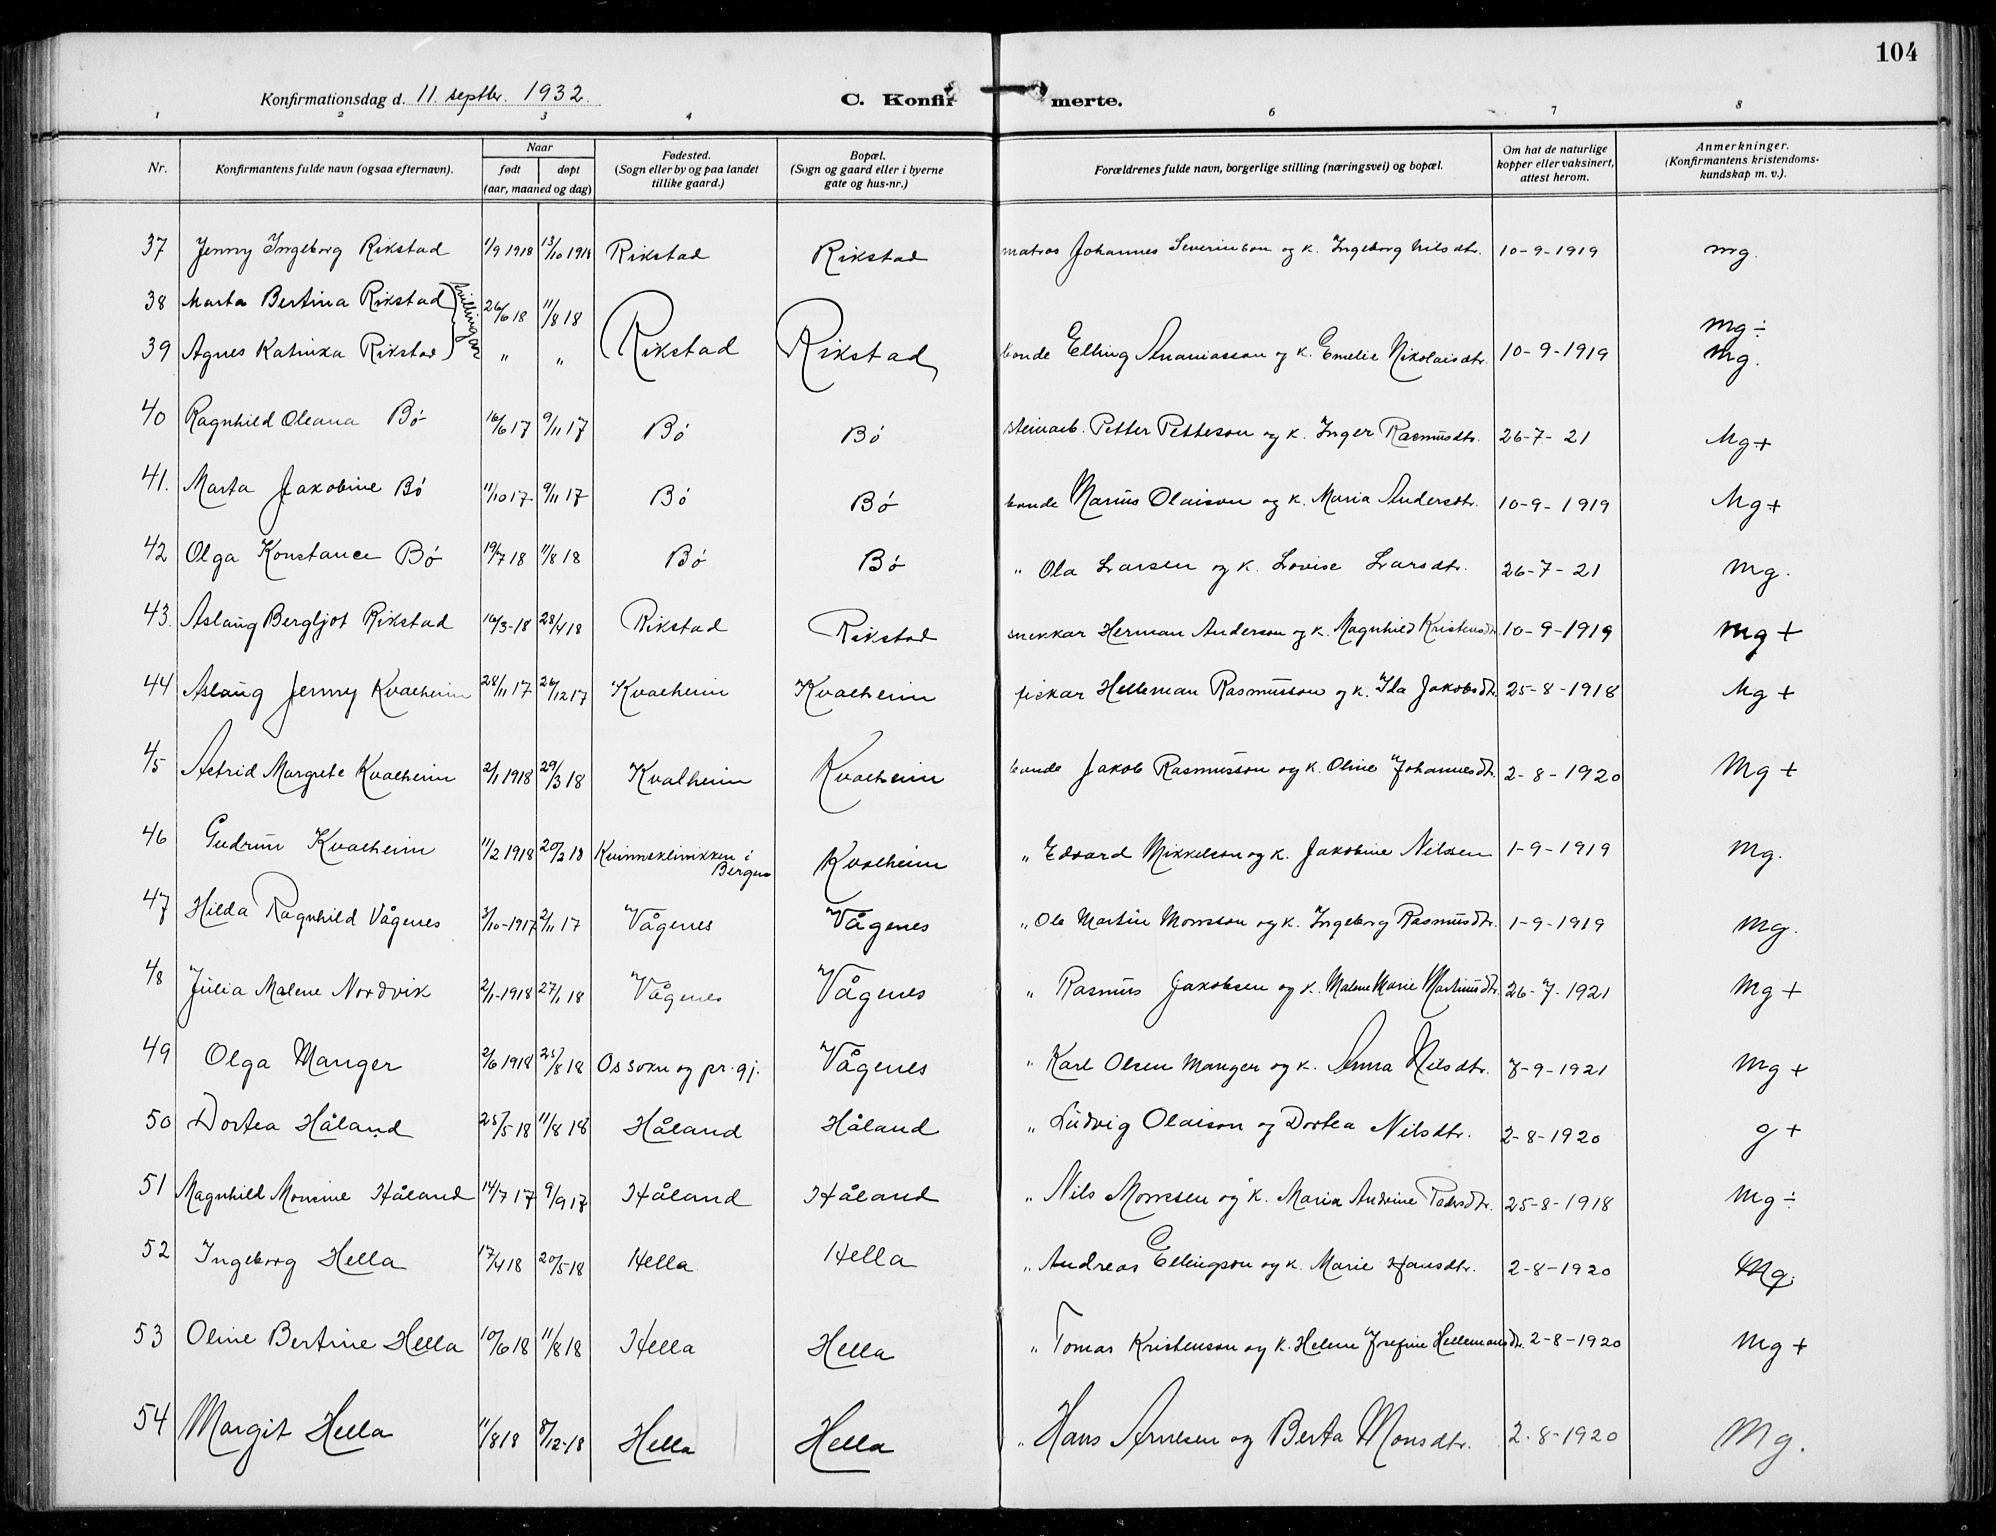 104
Konfirmationsdag d. 11. septbr. 1932.
C. Konfirmerte.
1 2 3 4 6 7 8
Nr. | Konfirmantens fulde navn (ogsaa efternavn). | Naar født døpt (aar, maaned og dag) | Fødested. (Sogn eller by og paa landet tillike gaard.) | Bopæl. (Sogn og gaard eller i byerne gate og hus-nr.) | Forældrenes fulde navn, borgerlige stilling (næringsvei) og bopæl. | Om hat de naturlige kopper eller vaksinert, attest herom. | Anmerkninger. (Konfirmantens kristendomskundskap m. v.).
37 Jenny Ingeborg Rikstad 1/9 1918 13/10 1918 Rikstad Rikstad matros Johannes Severinson og k. Ingeborg Nilsdtr. 10-9-1919 mg.
38 Marta Bertina Rikstad tvillingar 26/6 18 11/8 18 mg÷
39 Agnes Katinka Rikstad " " Rikstad Rikstad bonde Elling Ananiasson og k. Emelie Nikolaisdtr. 10-9-1919 mg.
40 Ragnhild Oleana Bø 16/6 17 9/11 17 Bø Bø steinarb. Petter Petteson og k. Inger Rasmusdtr. 26-7-21 Mg+
41. Marta Jakobine Bø 11/10 17 9/11 17 Bø Bø bonde Marius Olaison og k. Maria Andersdtr. 10-9-1919 Mg+
42 Olga Konstance Bø 19/7 18 11/8 18 Bø Bø " Ola Larsen og k. Lovise Larsdtr. 26-7-21 Mg.
43. Aslaug Bergljot Rikstad 16/3-18 28/4 18 Rikstad Rikstad snekkar Herman Anderson og k. Magnhild Kristensdtr. 10-9-1919 mg +
44 Aslaug Jenny Kvalheim 28/11 17 26/12 17 Kvalheim Kvalheim fiskar Helleman Rasmusson og k. Ida Jakobsdtr. 25-8-1918 Mg +
45 Astrid Margrete Kvalheim 2/1 1918 29/3 18 Kvalheim Kvalheim bonde Jakob Rasmusson og k. Oline Johannesdtr. 2-8-1920 Mg +
46 Gudrun Kvalheim 11/2 1918 20/2 18 Kvinneklinikken i Bergen Kvalheim " Edvard Mikkelson og k. Jakobine Nilsen 1-9-1919 Mg.
47 Hilda Ragnhild Vågenes 3/10-1917 2/11 17 Vågenes Vågenes " Ole Martin Monsson og k. Ingeborg Rasmusdtr. 1-9-1919 Mg.
48 Julia Malene Nordvik 2/1-1918 27/1 18 Vågenes Vågenes " Rasmus Jakobsen og k. Malene Marie Martinusdtr. 26-7-1921 Mg +
49 Olga Manger 2/6 1918 25/8 18 Os sokn og pr.gj. Vågenes " Karl Olsen Manger og k. Anna Nilsdtr. 7-9-1921 Mg +
50 Dortea Håland 25/5 18 11/8 18 Håland Håland " Ludvig Olaison og Dortea Nilsdtr. 2-8-1920 g +
51 Magnhild Monsine Håland 14/7 17 9/9 17 Håland Håland " Nils Monsen og k. Maria Andrine Pedersdtr. 25-8-1918 Mg÷
52 Ingeborg Hella 17/4 18 20/5 18 Hella Hella " Andreas Ellingson og k. Marie Hansdtr. 2-8-1920 Mg.
53 Oline Bertine Hella 10/6 18 11/8 18 Hella Hella " Tomas Kristenson og k. Helene Josefine Hellemansdtr. 2-8-1920 Mg +
54 Margit Hella 11/8 18 8/12-18 Hella Hella " Hans Arnesen og Berta Monsdtr. 2-8-1920 Mg.